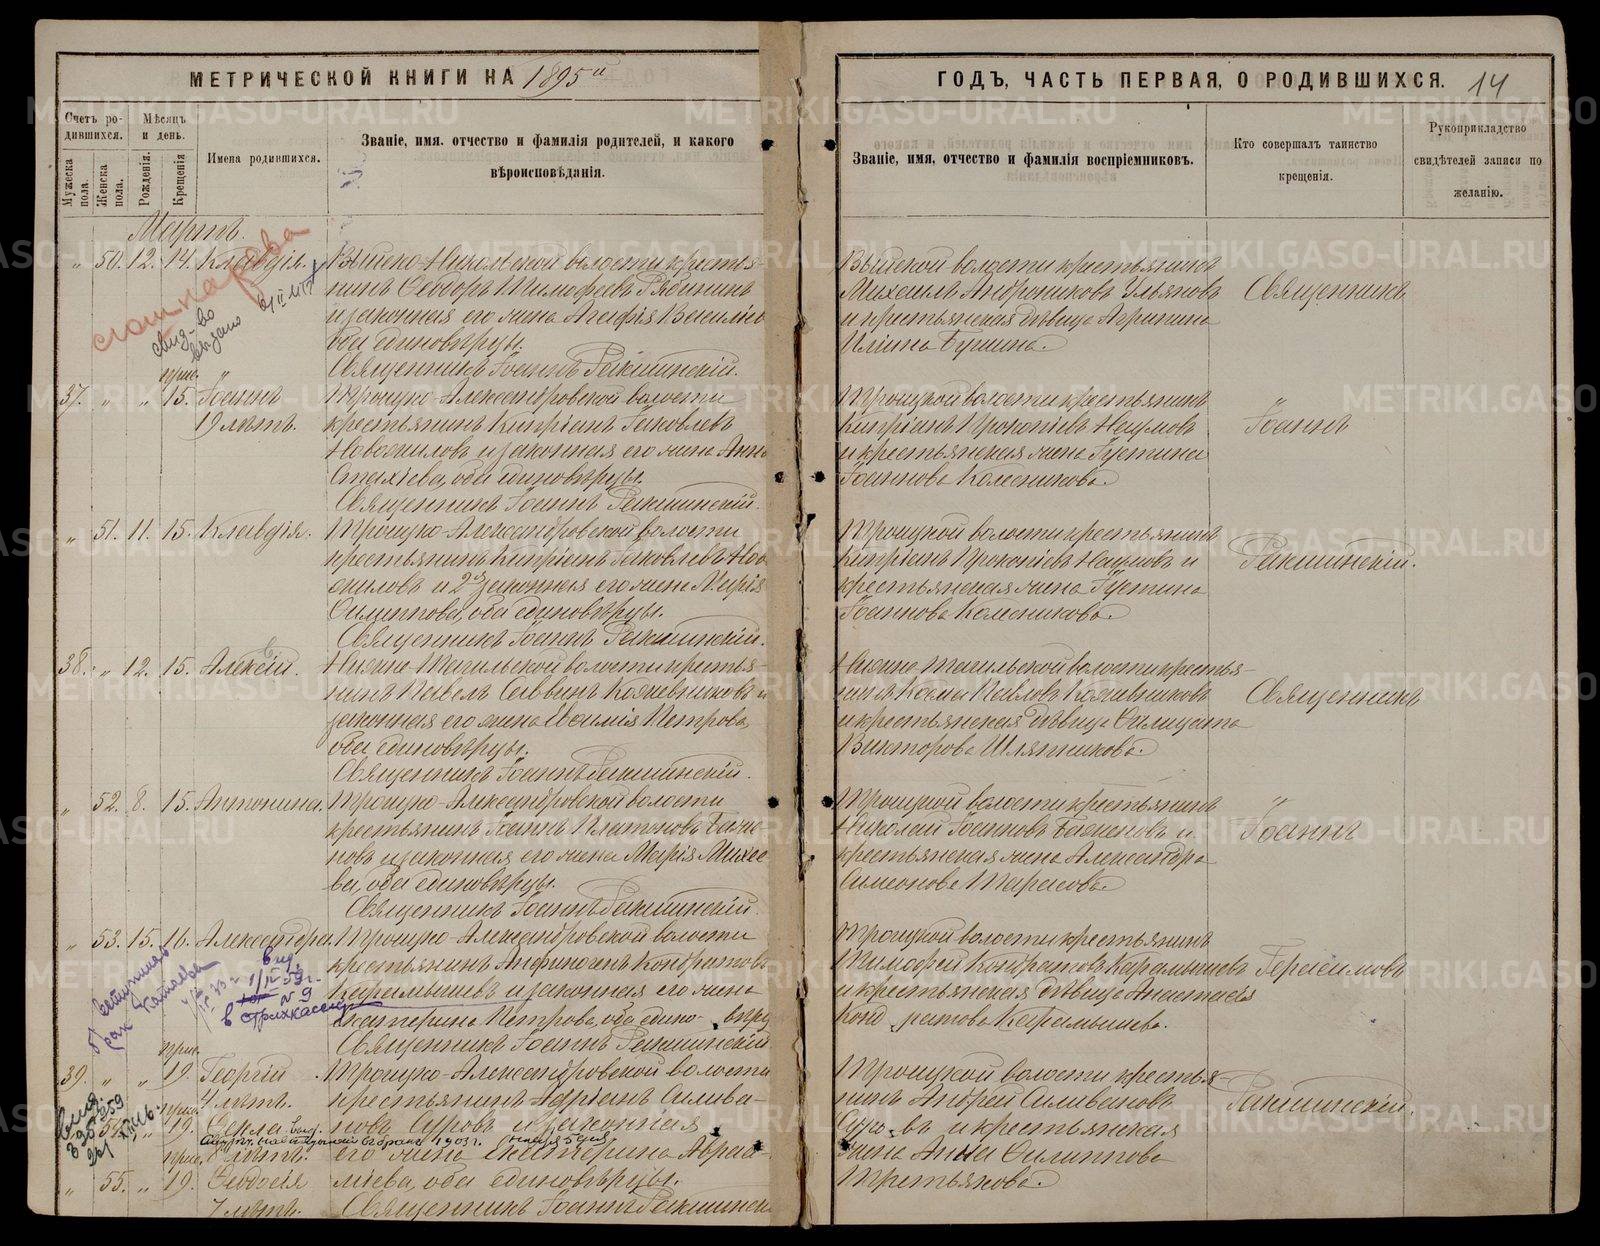 МЕТРИЧЕСКОЙ КНИГИ НА 1895й
ГОДЪ, ЧАСТЬ ПЕРВАЯ, О РОДИВШИХСЯ. 14
Счетъ родившихся.
Мужеска пола.
Женска пола.
Мѣсяцъ и день.
Рожденія.
Крещенія
Имена родившихся.
Званіе, имя. отчество и фамилія родителей, и какого
вѣроисповѣданія.
Званіе, имя, отчество и фамилія воспріемниковъ.
Кто совершалъ таинство
крещенія.
Рукоприкладство
свидѣтелей записи по
желанію.
Мартъ.
„ 50. 12. 14. Клавдія.
Выйско-Никольской волости крестья-
нинъ Ѳеодоръ Тимофеевъ Рябининъ
и законная его жена Агафія Василіе-
ва оба единовѣрцы.
Священникъ Іоаннъ Ракшинскій.
Выйской волости крестьянинъ
Михаилъ Андрониковъ Ульяновъ
и крестьянская дѣвица Агрипина
Ильина Бушина.
Священникъ
свид-во
выдано
прис.
37. „ „ 15. Іоаннъ
19 лѣтъ.
Троицко-Александровской волости
крестьянинъ Кипріанъ Іаковлевъ
Новожиловъ и законная его жена Анна
Стахіева, оба единовѣрцы.
Священникъ Іоаннъ Ракшинскій.
Троицкой волости крестьянинъ
Кипріанъ Прокопіевъ Наумовъ
и крестьянская жена Іустина
Іоаннова Колесникова.
Іоаннъ
„ 51. 11. 15. Клавдія.
Троицко-Александровской волости
крестьянинъ Кипріанъ Іаковлевъ Ново-
жиловъ и 2я законная его жена Марія
Филиппова, оба единовѣрцы.
Священникъ Іоаннъ Ракшинскій.
Троицкой волости крестьянинъ
Кипріанъ Прокопіевъ Наумовъ и
крестьянская жена Іустина
Іоаннова Колесникова.
Ракшинскій.
38. „ 12. 15. Алексій.
Нижне-Тагильской волости крестья-
нинъ Павелъ Саввинъ Кожевниковъ и
законная его жена Петрова,
оба единовѣрцы.
Священникъ Іоаннъ Ракшинскій.
Нижне Тагильской волости крестья-
нинъ Косма Павловъ Кожевниковъ
и крестьянская дѣвица Фелицата
Викторова Шляпникова.
Священникъ
„ 52. 8. 15. Антонина.
Троицко-Александровской волости
крестьянинъ Іоаннъ Платоновъ Баже-
новъ и законная его жена Марія Михее-
ва, оба единовѣрцы.
Священникъ Іоаннъ Ракшинскій.
Троицкой волости крестьянинъ
Николай Іоанновъ Баженовъ и
крестьянская жена Александра
Симеонова Тарасова.
Іоаннъ
„ 53. 15. 16. Александра.
Троицко-Александровской волости
крестьянинъ Анфиногенъ Кондратовъ
Карамышевъ и законная его жена
Екатерина Петрова, оба едино- вѣрцы
Священникъ Іоаннъ Ракшинскій
Троицкой волости крестьянинъ
Тимофей Кондратовъ Карамышевъ
и крестьянская дѣвица Анастасія
Конд ратова Карамышева.
Герасимовъ
№ 9
в страхкассу
прис.
39. „ „ 19. Георгій
4 лѣтъ.
прис.
54. „ 19. Ѳекла
прис. лѣтъ.
„ 55. „ 19. Ѳеодосія
7 лѣтъ.
Троицко-Александровской волости
крестьянинъ Адріанъ Силива-
новъ Суровъ и законная
его жена Екатерина Авраа-
міева, оба единовѣрцы.
Священникъ Іоаннъ Ракшинскій
Троицкой волости крестья-
нинъ Андрей Силивановъ
Суро въ и крестьянская
жена Анна Филиппова
Третьякова.
Ракшинскій.
METRIKI.GASO-URAL.RU